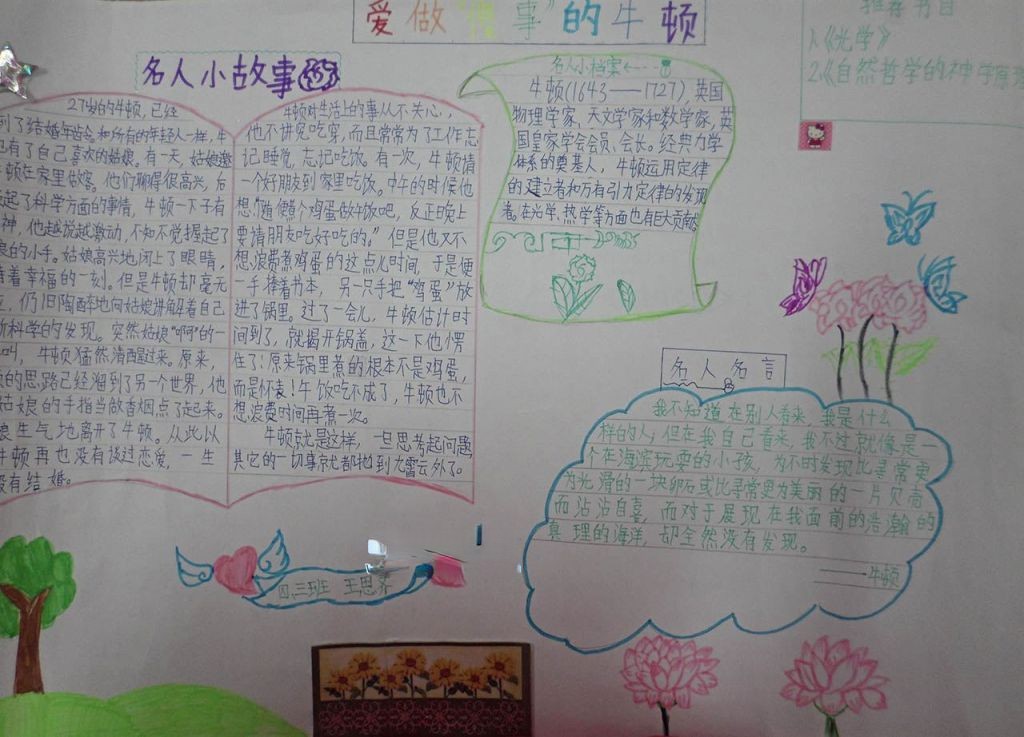 爱做“傻事”的牛顿
推荐书目
1.《光学》
2.《自然哲学的神学原理
名人小故事
27岁的牛顿,已经
到了结婚年龄。和所有的年轻人一样,牛
也有了自己喜欢的姑娘。有一天,姑娘邀
牛顿在家里做客。他们聊得很高兴,后
起了科学方面的事情,牛顿一下子有
神,他越说越激动,不知不觉握起了
娘的小手。姑娘高兴地闭上了眼睛,
着幸福的一刻。但是牛顿却毫无
仍旧陶醉地向姑娘讲解着自己
科学的发现。突然姑娘“啊”的一
叫,牛顿猛然清醒过来。原来,
的思路已经溜到了另一个世界,他
姑娘的手指当做香烟点了起来。
娘生气地离开了牛顿。从此以
牛顿再也没有谈过恋爱,一生
没有结婚。
牛顿对生活上的事从不关心,
他不讲究吃穿,而且常常为了工作忘
记睡觉,忘记吃饭。有一次,牛顿请
一个好朋友到家里吃饭。中午的时候他
想:“随便煮个鸡蛋做午饭吧,反正晚上
要请朋友吃好吃的。”但是他又不
想浪费煮鸡蛋的这点儿时间,于是便
一手捧着书本,另一只手把“鸡蛋”放
进了锅里。过了一会儿,牛顿估计时
间到了,就揭开锅盖,这一下他愣
住了:原来锅里煮的根本不是鸡蛋,
而是怀表!午饭吃不成了,牛顿也不
想浪费时间再煮一次。
牛顿就是这样,一旦思考起问题
其它的一切事就都抛到九霄云外了。
名人小档案
牛顿(1643——1727),英国
物理学家、天文学家和数学家,英
国皇家学会会员、会长。经典力学
体系的奠基人,牛顿运用定律
的建立者和万有引力定律的发现
者。在光学、热学等方面也有巨大贡献。
名人名言
我不知道在别人看来,我是什么
样的人;但在我自己看来,我不过就像是一
个在海滨玩耍的小孩,为不时发现比寻常更
为光滑的一块卵石或比寻常更为美丽的一片贝壳
而沾沾自喜,而对于展现在我面前的浩瀚的
真理的海洋,却全然没有发现。
——牛顿
四.三班 王思